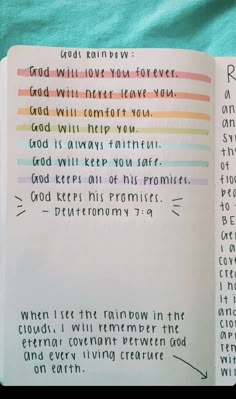 Gods Rainbow:
God will love you forever.
God will never leave you.
God will comfort you.
God will help you.
God is always faithful.
God will keep you safe.
God keeps all of his promises.
God keeps his promises.
- Deuteronomy 7:9
When I see the rainbow in the
clouds, I will remember the
eternal covenant between God
and every living creature
on earth.